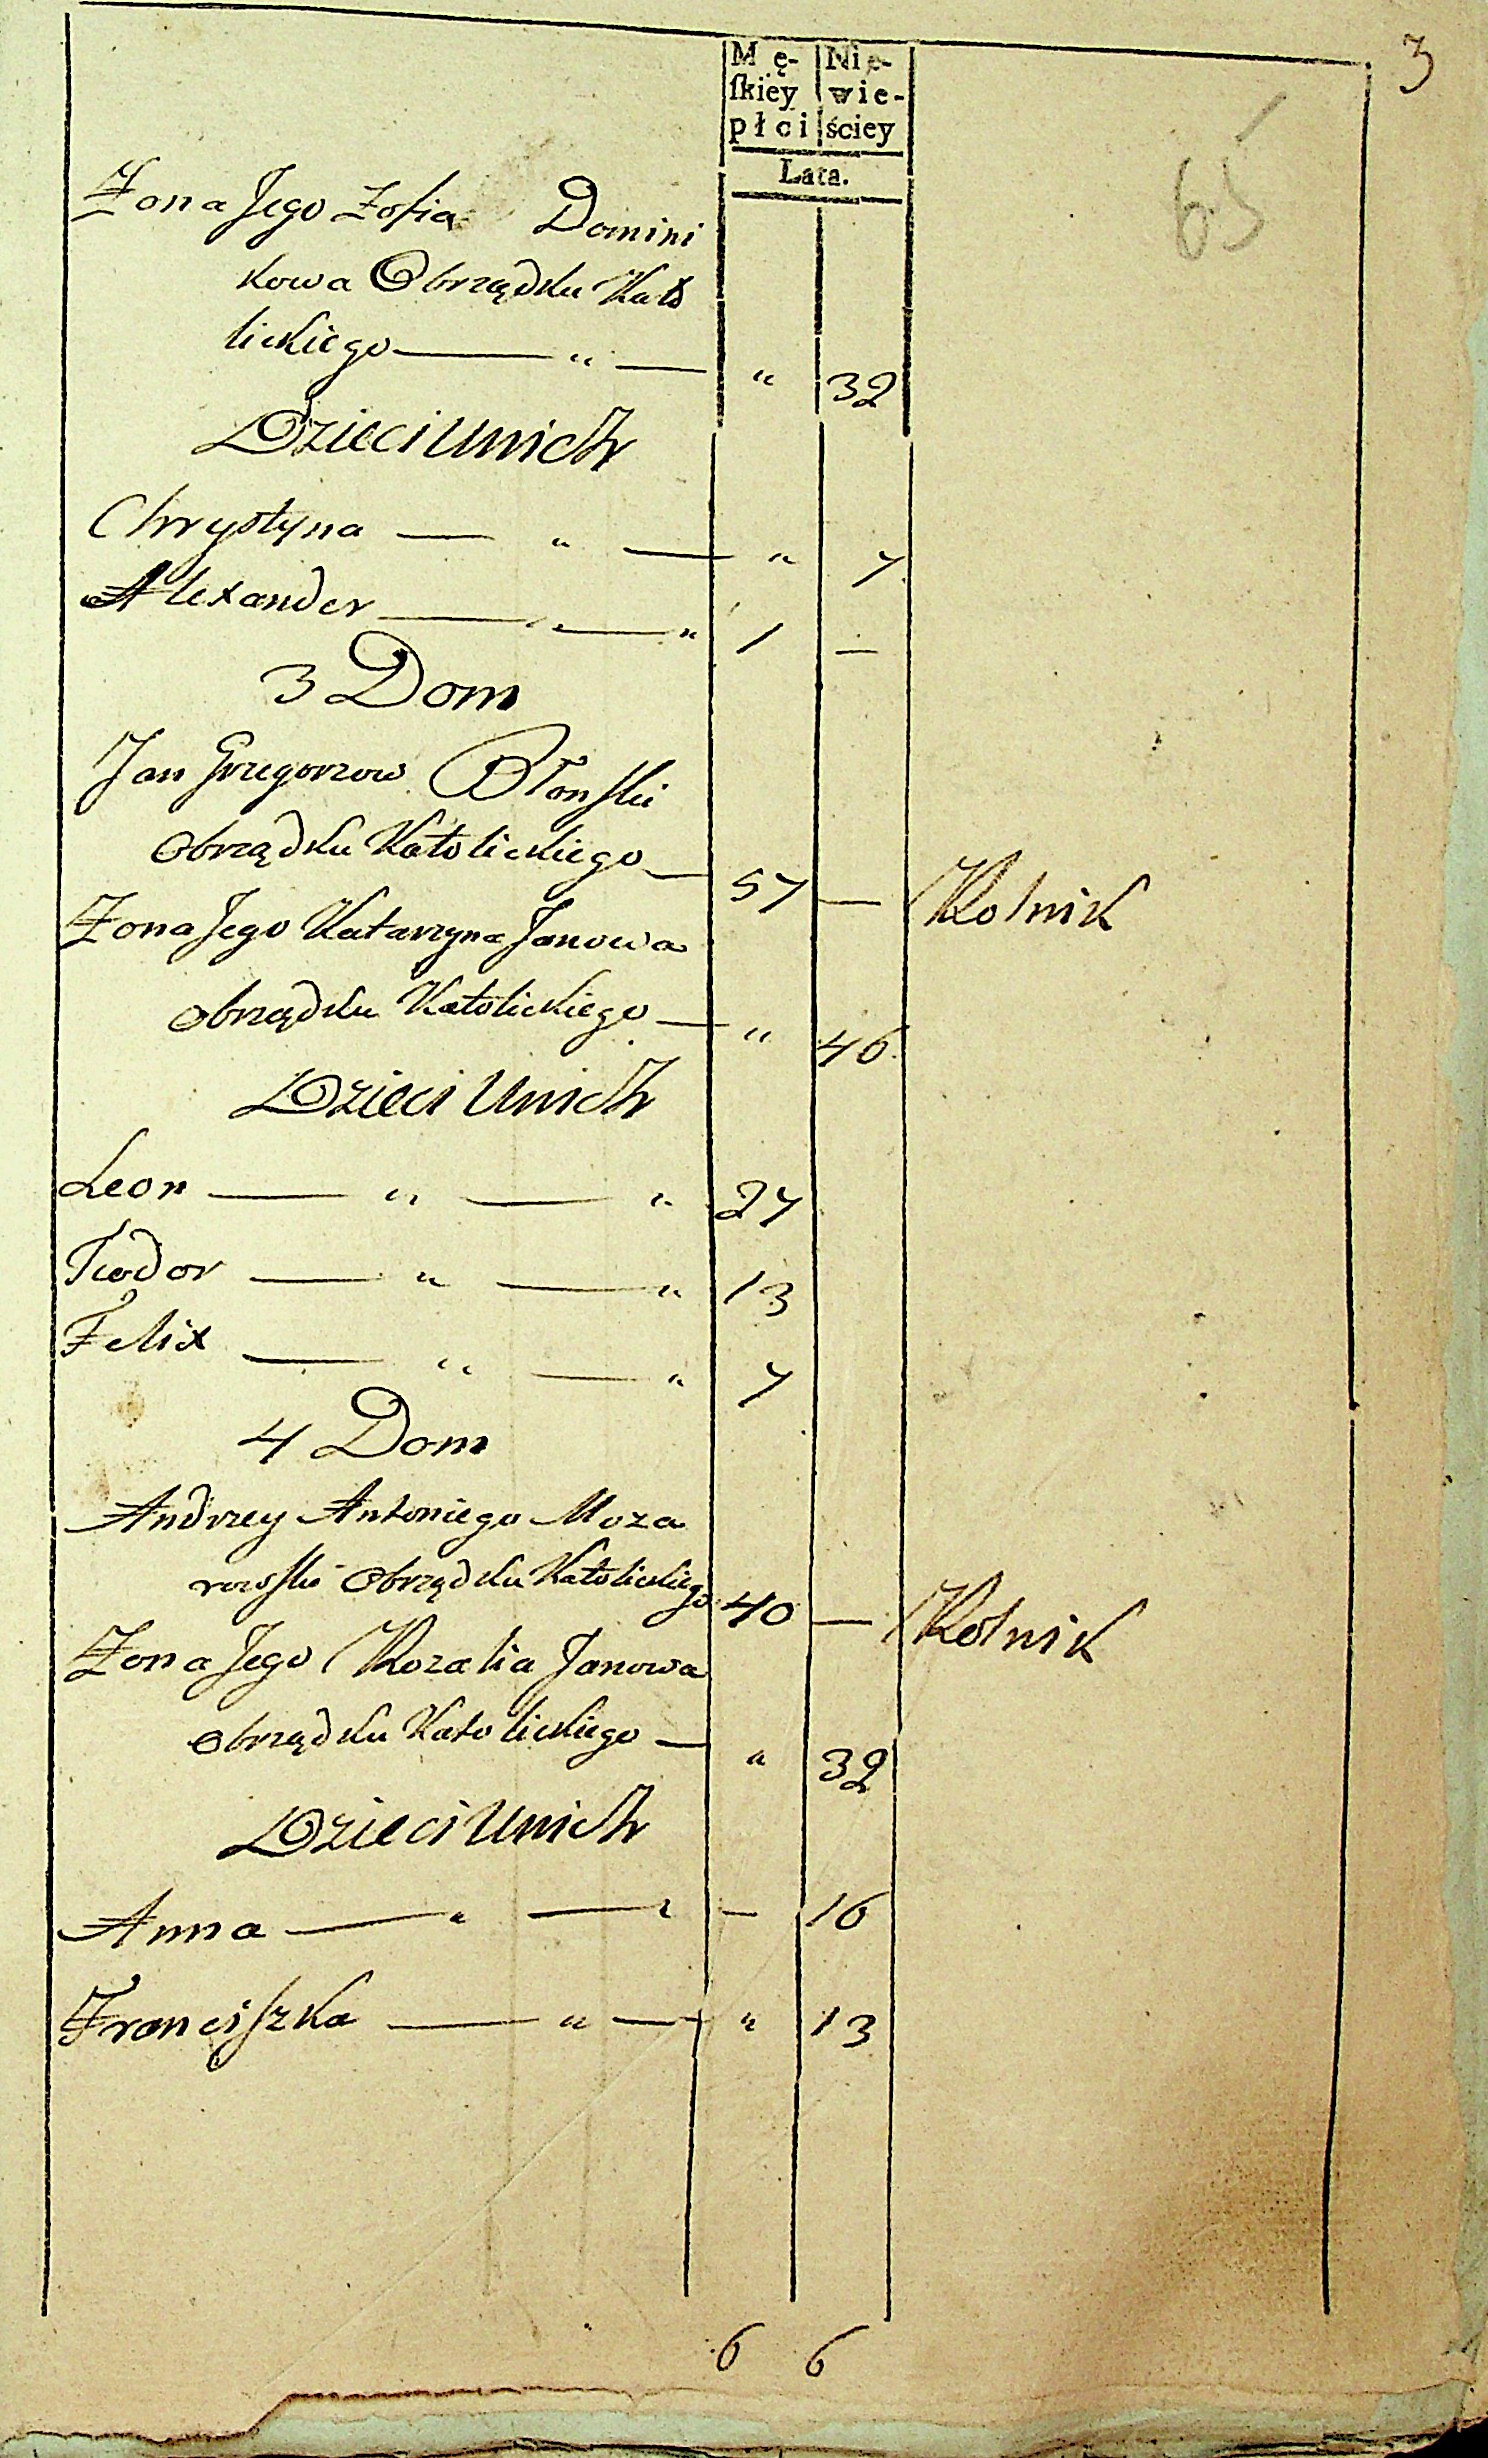 3
65
Mę- Nie-
ſkiey wie-
płci ściey
Lata.
Żona Jego Zofia Domini
kowa Obrządku Kato
lickiego — " — " 32
Dzieci unich
Chrystyna — " — " 7
Alexander — " — " 1 —
3 Dom
Jan Grzegorzow Błonſki
Obrządku Katolickiego — 57 — Rolnik
Żona Jego Katarzyna Janowa
Obrządku Katolickiego — " 46
Dzieci Unich
Leon — " — " 27
Teodor — " — " 13
Felix — " — " 7
4 Dom
Andrzey Antoniego Moza
rowſki Obrządku Katolickiego 40 — Rolnik
Żona Jego Rozalia Janowa
Obrządku Katolickiego — " 32
Dzieci Unich
Anna — " — " — 16
Franciſzka — " — " 13
6 6